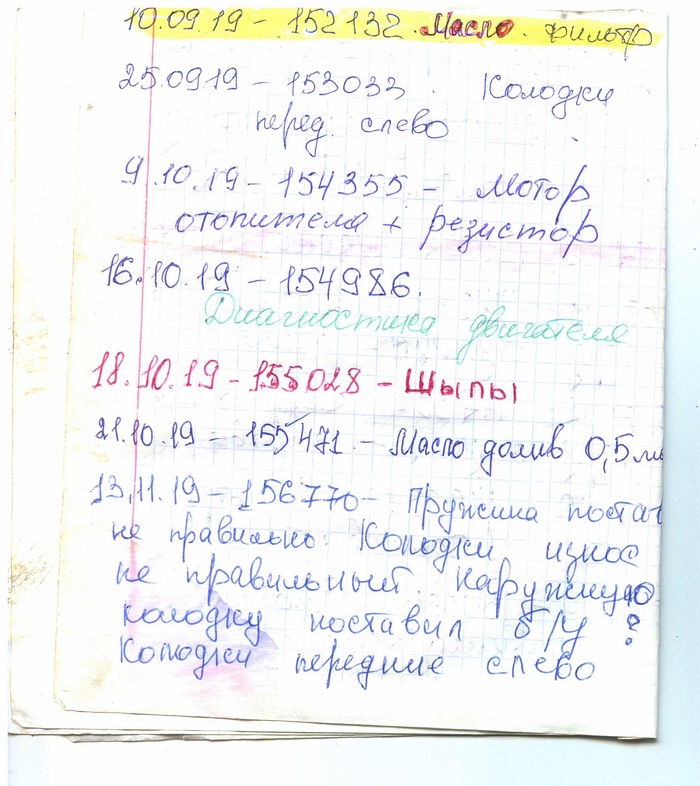 10.09.19 - 152132. Масло. фильтр
25.09.19 - 153033. Колодки
перед. слево
9.10.19 - 154355 - Мотор
отопителя + резистор
16.10.19 - 154986.
Диагностика двигателя
18.10.19 - 155028 - Шыпы
21.10.19 - 155471. - Масло долив 0,5
13.11.19 - 156770 - Пружина постав
не правильно. Колодки износ
не правильный. Наружную
колодку поставил б/у ?
Колодки передние слево